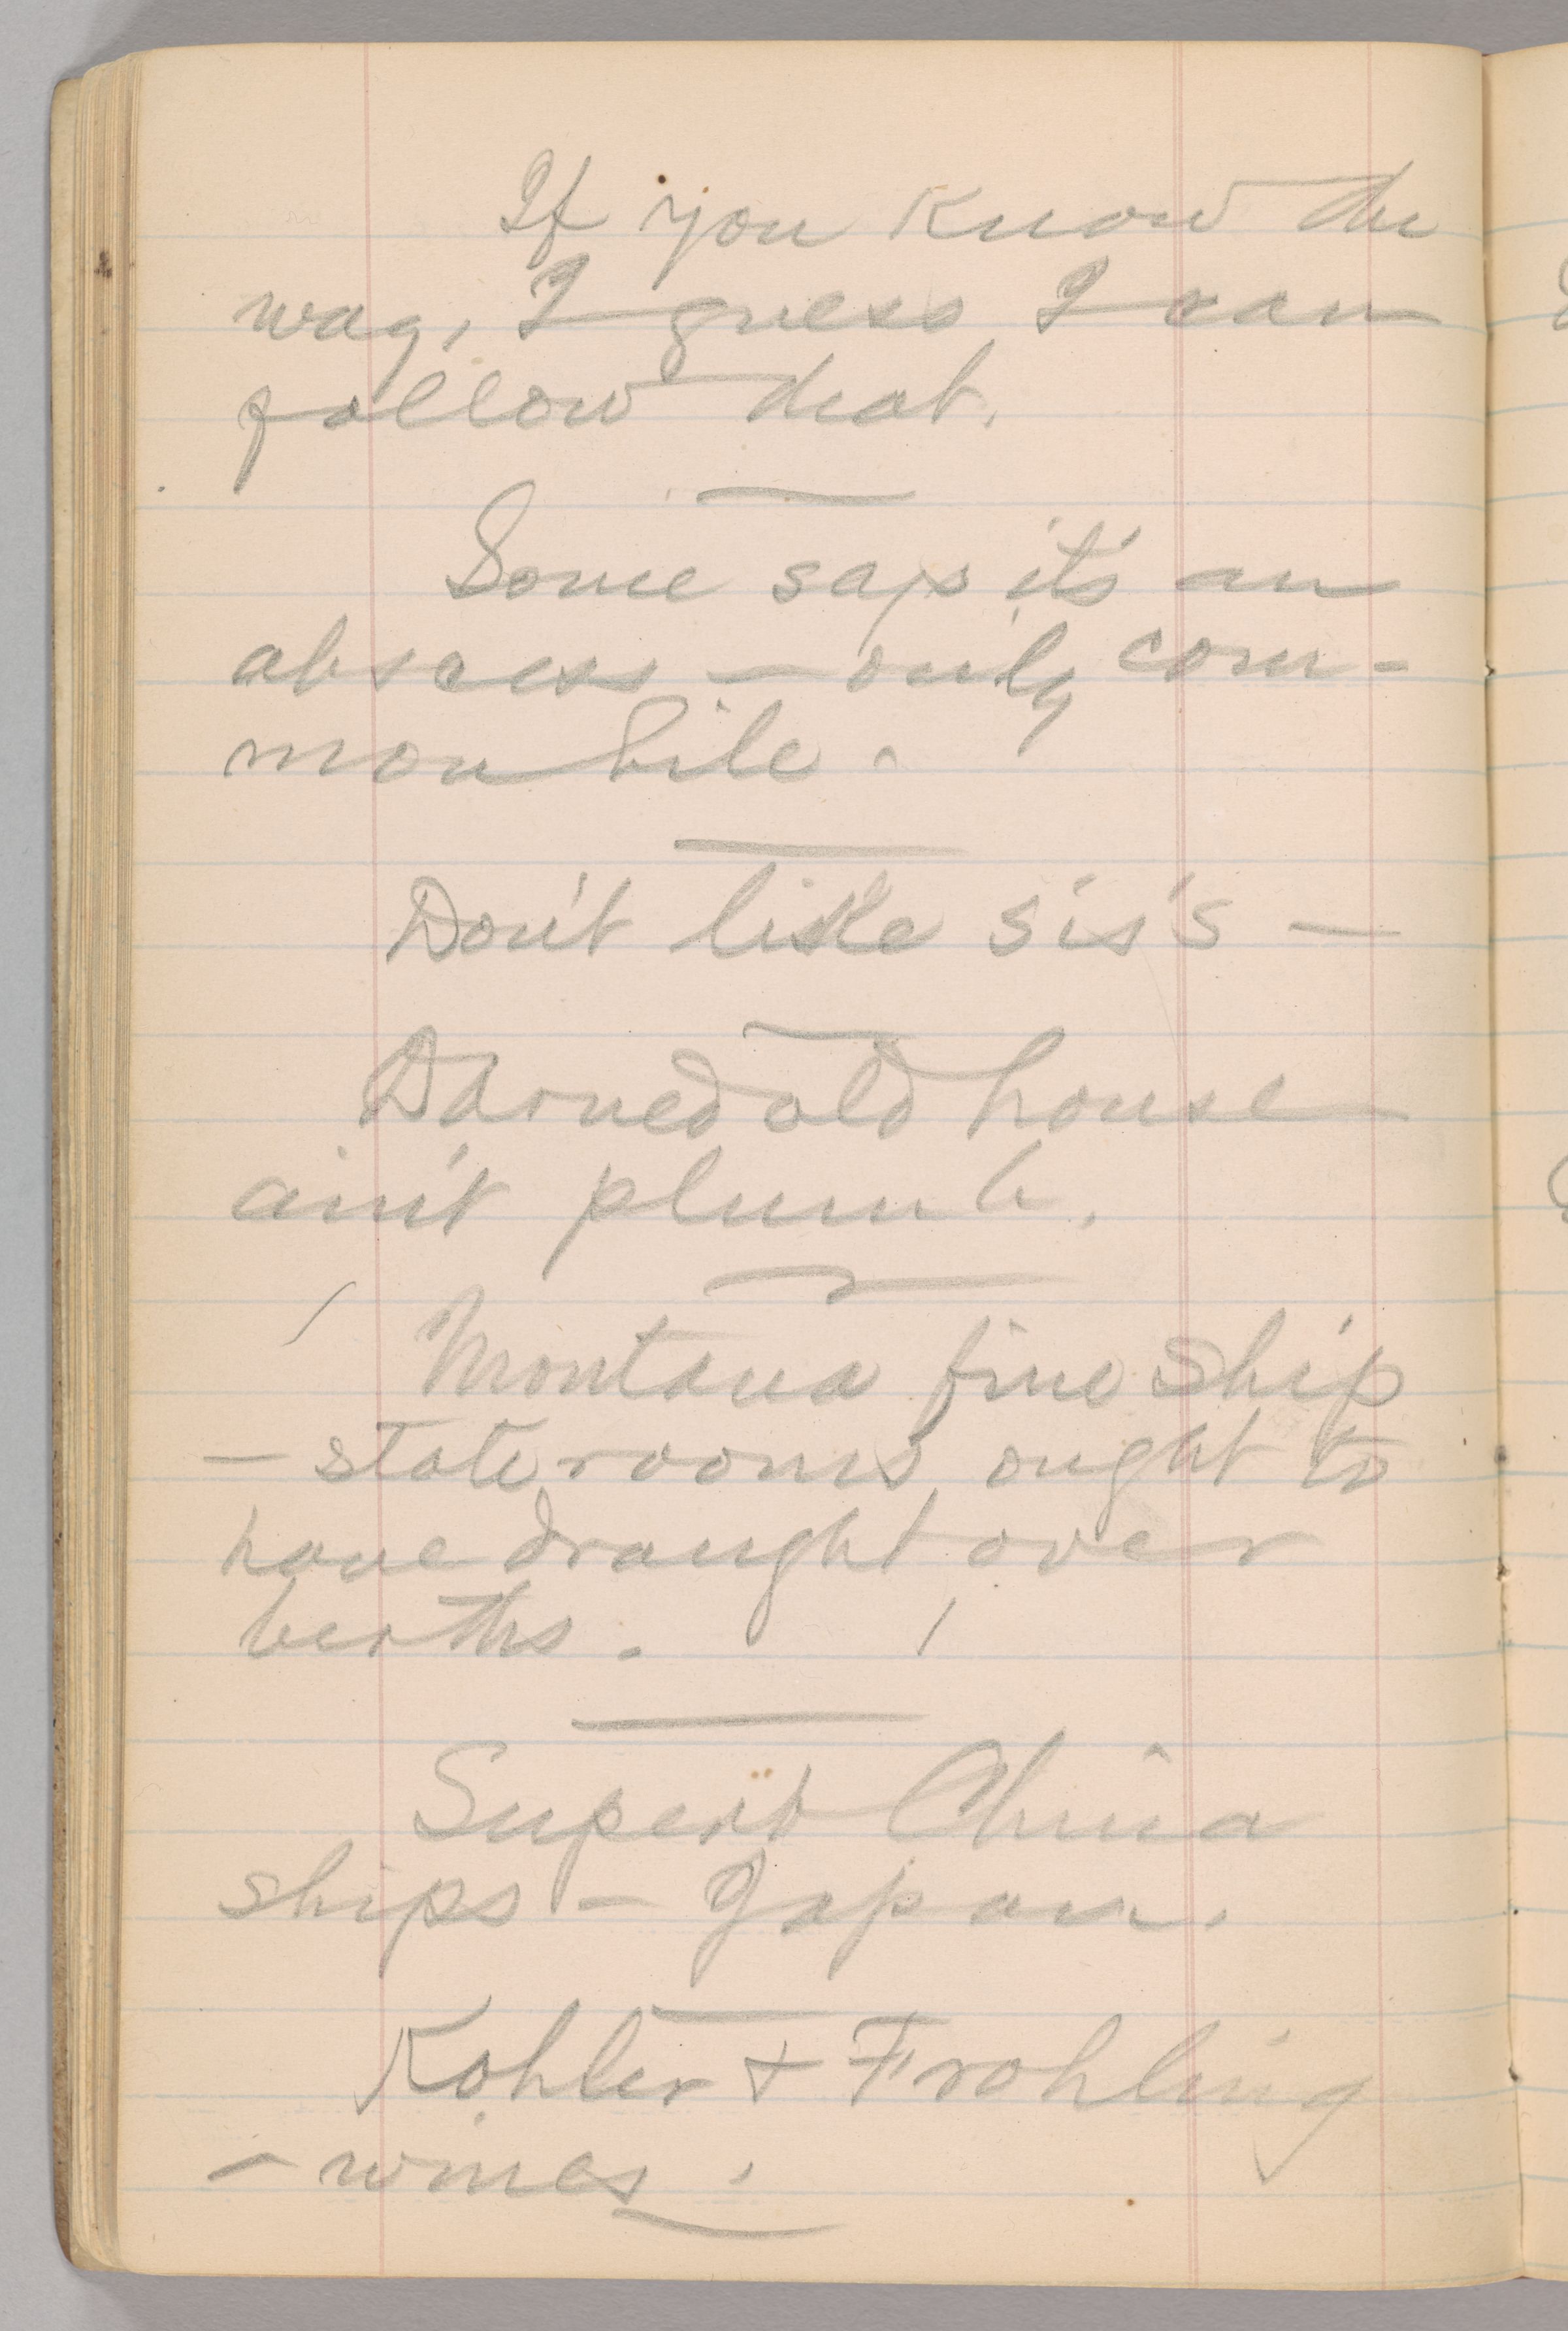 If you know the
way, I guess I can
follow that.
Some says it's an
abscess — only com-
mon bile.
Don't like sis's —
Darned old house
ain't plumb.
Montana fine ship
— state rooms ought to
have draught over
berths.
Superb China
ships — Japan.
Kohler & Frohling
— wines.